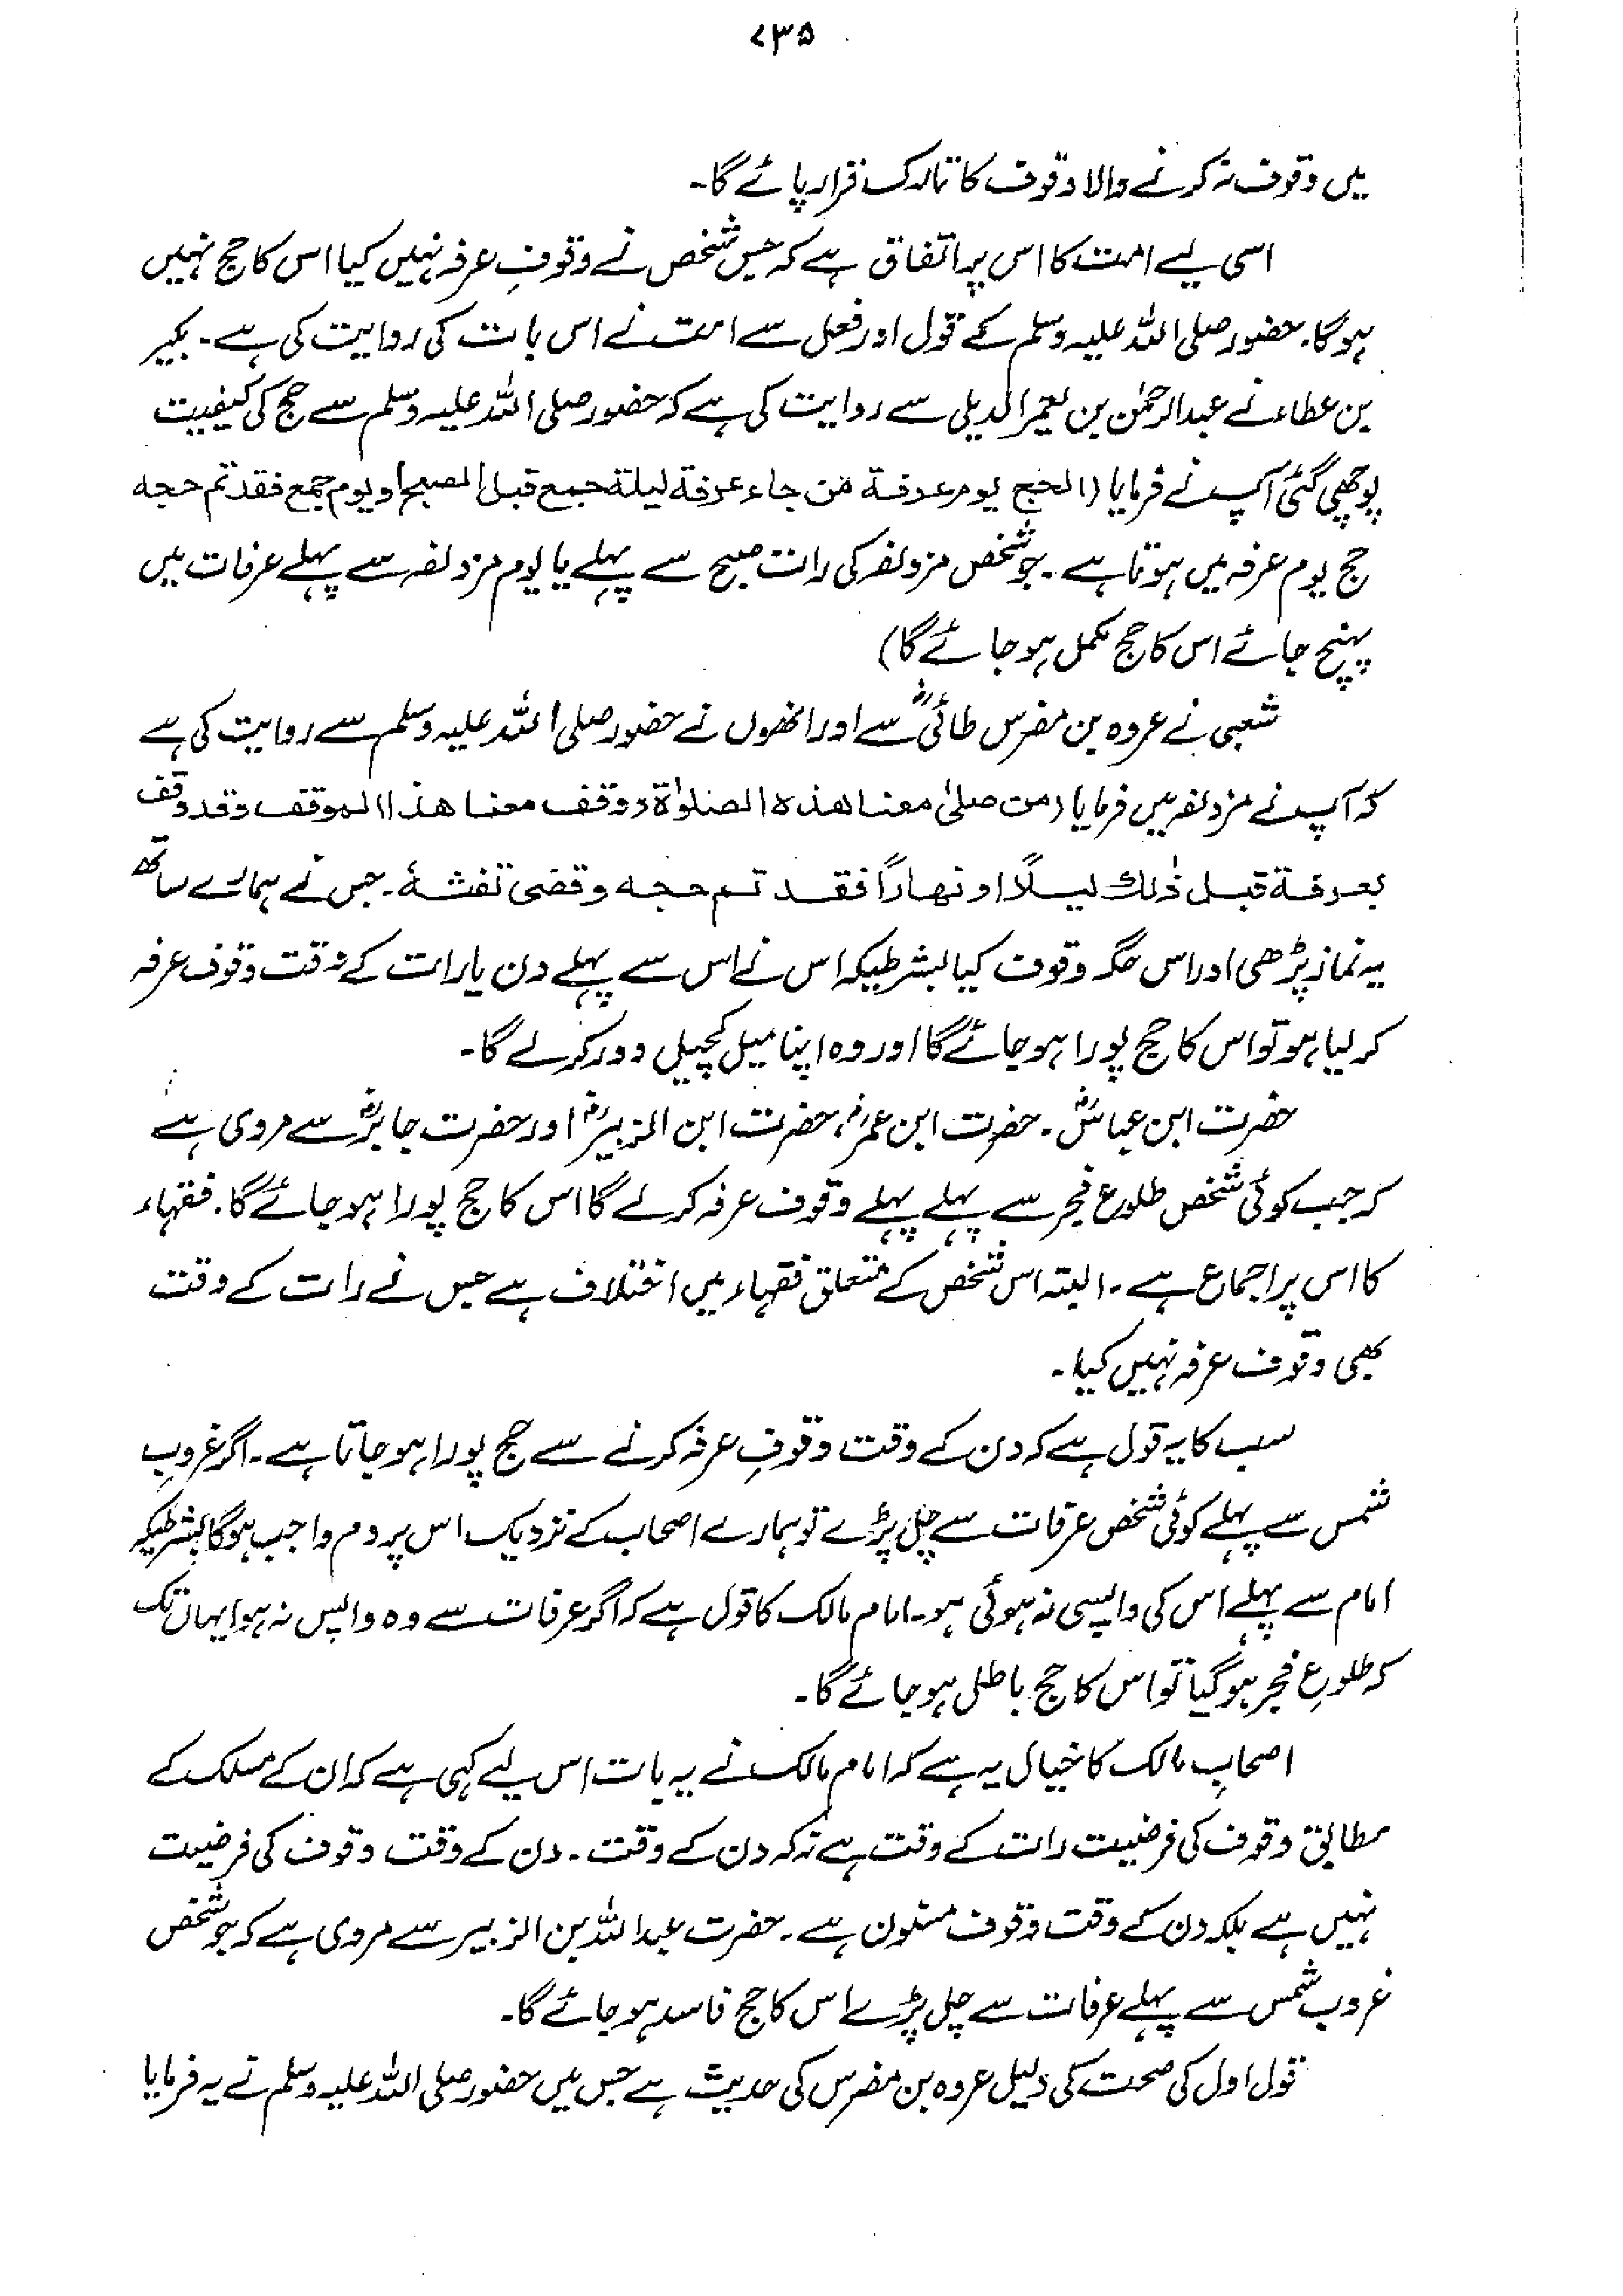 ۷۳۵
میں وقوف نہ کرنے والا وقوف کا تارک قرار پائے گا۔
اسی لیے امت کا اس پر اتفاق ہے کہ جس شخص نے وقوفِ عرفہ نہیں کیا اس کا حج نہیں
ہوگا۔ حضور صلی اللہ علیہ وسلم کے قول اور فعل سے امت نے اس بات کی روایت کی ہے۔ بکیر
بن عطاء نے عبدالرحمٰن بن یعمر الدیلی سے روایت کی ہے کہ حضور صلی اللہ علیہ وسلم سے حج کی کیفیت
پوچھی گئی آپ نے فرمایا (الحج یوم عرفة من جاء عرفة لیلة جمع قبل الصبح او یوم جمع فقد تم حجه
حج یوم عرفہ میں ہوتا ہے۔ جو شخص مزدلفہ کی رات صبح سے پہلے یا یوم مزدلفہ سے پہلے عرفات میں
پہنچ جائے اس کا حج مکمل ہو جائے گا)
شعبی نے عروہ بن مضرس طائیؓ سے اور انھوں نے حضور صلی اللہ علیہ وسلم سے روایت کی ہے
کہ آپ نے مزدلفہ میں فرمایا (من صلیٰ معنا هذه الصلوٰة ووقف معنا هذا الموقف وقد وقف
بعرفة قبل ذٰلك لیلاً او نهاراً فقد تم حجه وقضی تفثهٗ۔ جس نے ہمارے ساتھ
یہ نماز پڑھی اور اس جگہ وقوف کیا بشرطیکہ اس نے اس سے پہلے دن یا رات کے وقت وقوف عرفہ
کر لیا ہو تو اس کا حج پورا ہو جائے گا اور وہ اپنا میل کچیل دور کرلے گا۔
حضرت ابن عباسؓ۔ حضرت ابن عمرؓ، حضرت ابن الزبیرؓ اور حضرت جابرؓ سے مروی ہے
کہ جب کوئی شخص طلوع فجر سے پہلے پہلے وقوف عرفہ کرلے گا اس کا حج پورا ہو جائے گا۔ فقہاء
کا اس پر اجماع ہے۔ البتہ اس شخص کے متعلق فقہاء میں اختلاف ہے جس نے رات کے وقت
بھی وقوف عرفہ نہیں کیا۔
سب کا یہ قول ہے کہ دن کے وقت وقوفِ عرفہ کرنے سے حج پورا ہو جاتا ہے۔ اگر غروبِ
شمس سے پہلے کوئی شخص عرفات سے چل پڑے تو ہمارے اصحاب کے نزدیک اس پر دم واجب ہوگا بشرطیکہ
امام سے پہلے اس کی واپسی نہ ہوئی ہو۔ امام مالک کا قول ہے کہ اگر عرفات سے وہ واپس نہ ہوا یہاں تک
کہ طلوعِ فجر ہو گیا تو اس کا حج باطل ہو جائے گا۔
اصحابِ مالک کا خیال یہ ہے کہ امام مالک نے یہ بات اس لیے کہی ہے کہ ان کے مسلک کے
مطابق وقوف کی فرضیت رات کے وقت ہے نہ کہ دن کے وقت۔ دن کے وقت وقوف کی فرضیت
نہیں ہے بلکہ دن کے وقت وقوف مسنون ہے۔ حضرت عبداللہ بن الزبیر سے مروی ہے کہ جو شخص
غروب شمس سے پہلے عرفات سے چل پڑے اس کا حج فاسد ہو جائے گا۔
قول اول کی صحت کی دلیل عروہ بن مضرس کی حدیث ہے جس میں حضور صلی اللہ علیہ وسلم نے یہ فرمایا